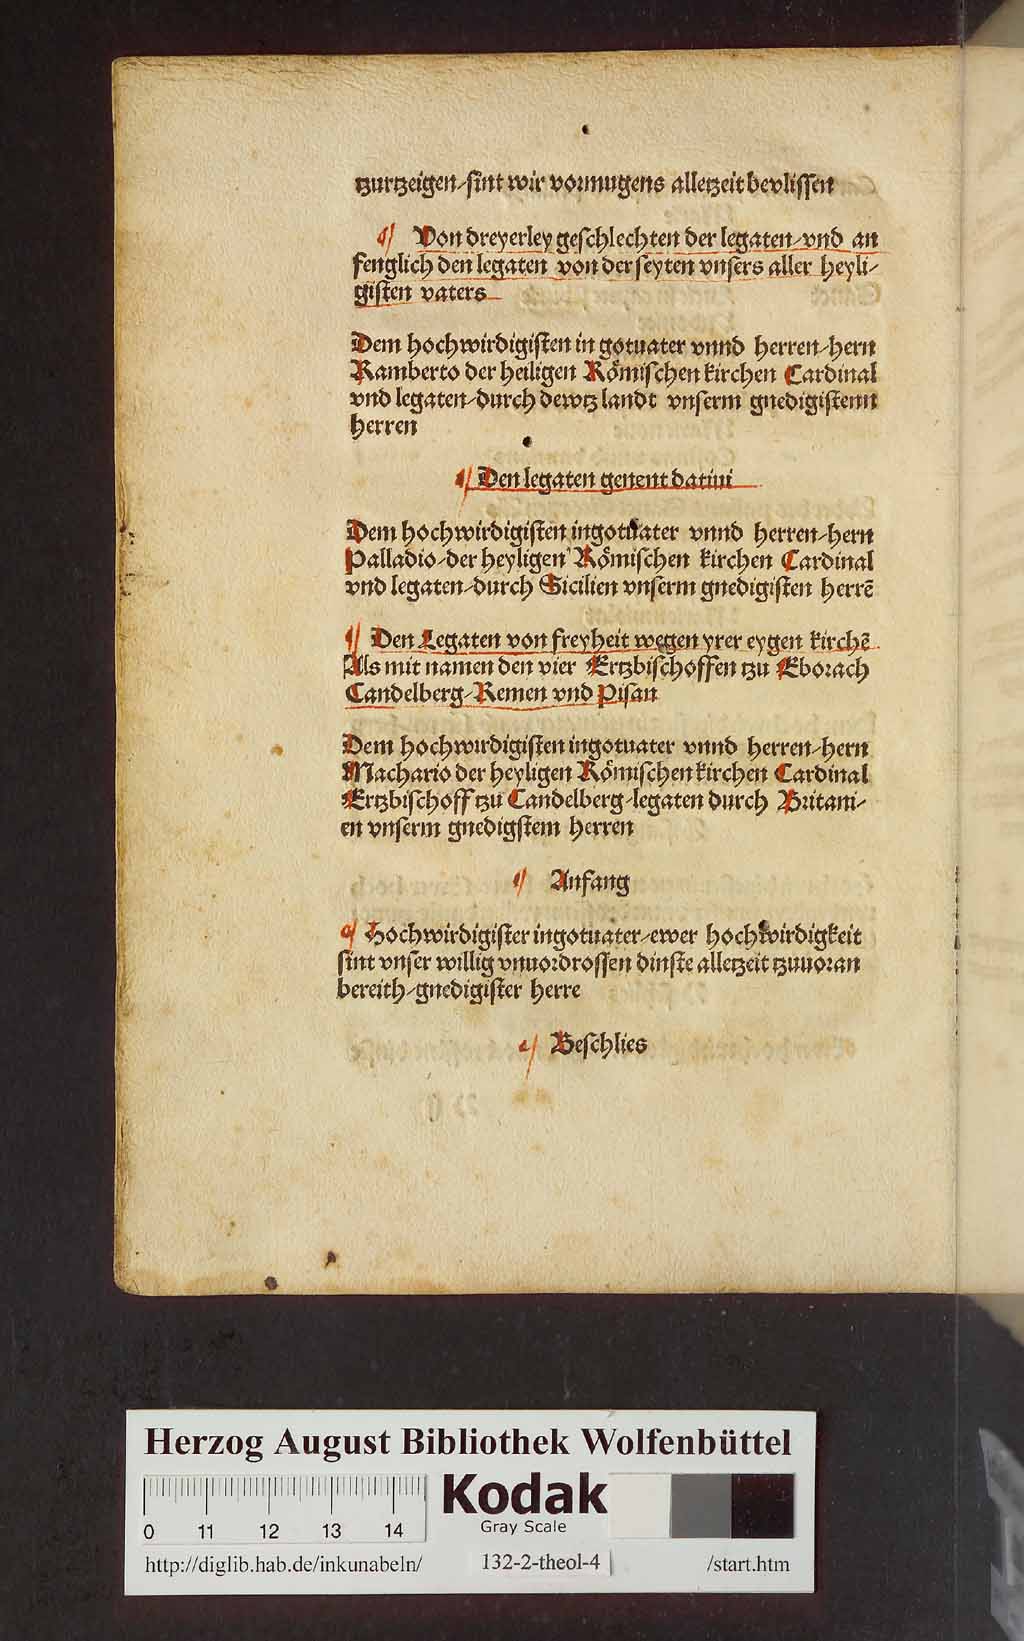 tzurtzeigen/sint wir vormugens alletzeit bevlissen
Von dreyerley geschlechten der legaten/vnd an
fenglich den legaten von der seyten vnsers aller heyli/
gisten vaters
Dem hochwirdigisten in gotuater vnnd herren/hern
Ramberto der heiligen Römischen kirchen Cardinal
vnd legaten/durch dewtz landt vnserm gnedigistenn
herren
Den legaten genent datiui
Dem hochwirdigisten ingotuater vnnd herren/hern
Palladio/der heyligen Römischen kirchen Cardinal
vnd legaten/durch Sicilien vnserm gnedigisten herrē
Den Legaten von freyheit wegen yrer eygen kirchē
Als mit namen den vier Ertzbischoffen tzu Eborach
Candelberg/Remen vnd Pisan
Dem hochwirdigisten ingotuater vnnd herren/hern
Machario der heyligen Römischen kirchen Cardinal
Ertzbischoff tzu Candelberg/legaten durch Britani/
en vnserm gnedigstem herren
Anfang
Hochwirdigister ingotuater/ewer hochwirdigkeit
sint vnser willig vnuordrossen dinste alletzeit tzuuoran
bereith/gnedigister herre
Beschlies
Herzog August Bibliothek Wolfenbüttel
Kodak
Gray Scale
0 11 12 13 14
http://diglib.hab.de/inkunabeln/ 132-2-theol-4 /start.htm